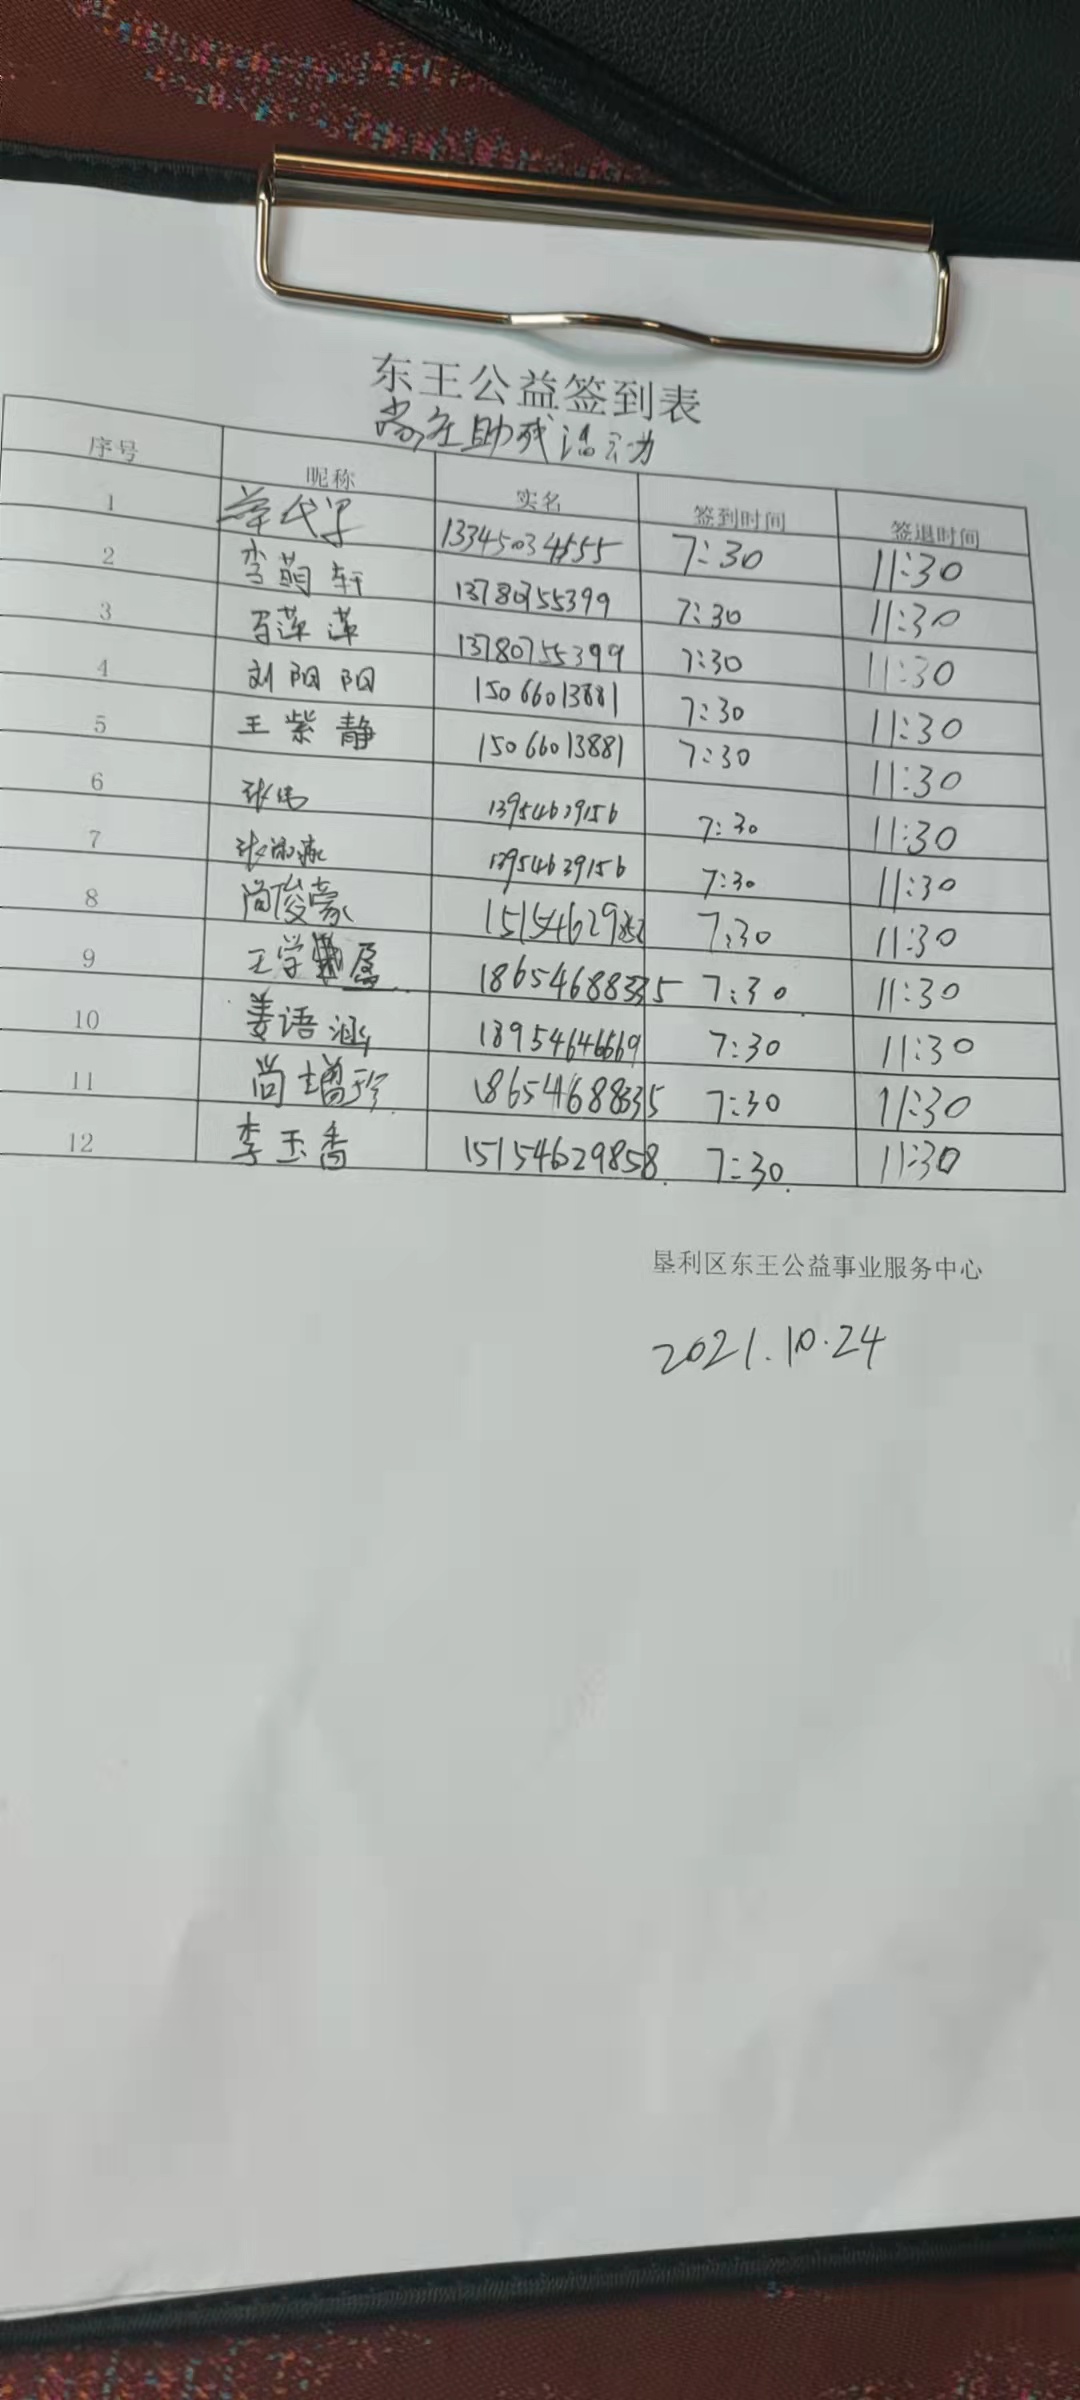 东王公益签到表
助残活动
序号 昵称 实名 签到时间 签退时间
1 13345034555 7:30 11:30
2 李萌轩 13780755399 7:30 11:30
3 萍萍 13780755399 7:30 11:30
4 刘阳阳 15066013881 7:30 11:30
5 王紫静 15066013881 7:30 11:30
6 张伟 13954639156 7:30 11:30
7 13954639156 7:30 11:30
8 尚俊豪 15154629858 7:30 11:30
9 王学盈 18654688335 7:30 11:30
10 姜语涵 13954646669 7:30 11:30
11 尚增珍 18654688335 7:30 11:30
12 李玉香 15154629858 7:30 11:30
垦利区东王公益事业服务中心
2021.10.24